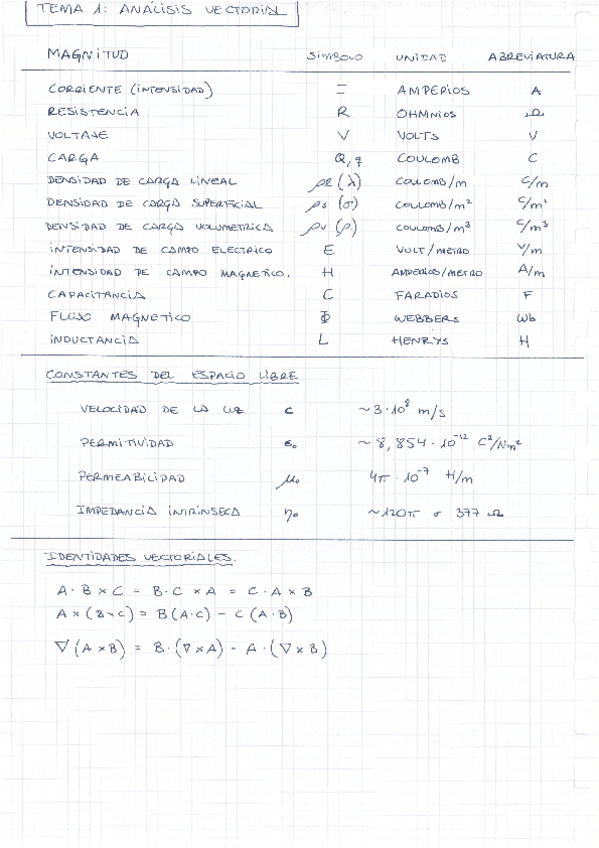 TEMA 1: ANÁLISIS VECTORIAL
MAGNITUD SIMBOLO UNIDAD ABREVIATURA
CORRIENTE (INTENSIDAD) I AMPERIOS A
RESISTENCIA R OHMNIOS Ω
VOLTAJE V VOLTS V
CARGA Q, q COULOMB C
DENSIDAD DE CARGA LINEAL ρl (λ) COULOMB/m C/m
DENSIDAD DE CARGA SUPERFICIAL ρs (σ) COULOMB/m² C/m²
DENSIDAD DE CARGA VOLUMETRICA ρv (ρ) COULOMB/m³ C/m³
INTENSIDAD DE CAMPO ELECTRICO E VOLT/METRO V/m
INTENSIDAD DE CAMPO MAGNETICO. H AMPERIOS/METRO A/m
CAPACITANCIA C FARADIOS F
FLUJO MAGNETICO Φ WEBBERS Wb
INDUCTANCIA L HENRYS H
CONSTANTES DEL ESPACIO LIBRE
VELOCIDAD DE LA LUZ c ~3·10⁸ m/s
PERMITIVIDAD ε₀ ~8,854·10⁻¹² C²/Nm²
PERMEABILIDAD μ₀ 4π·10⁻⁷ H/m
IMPEDANCIA INTRINSECA η₀ ~120π o 377 Ω
IDENTIDADES VECTORIALES.
A · B × C = B · C × A = C · A × B
A × (B × C) = B (A·C) - C (A·B)
∇ (A × B) = B · (∇ × A) - A · (∇ × B)